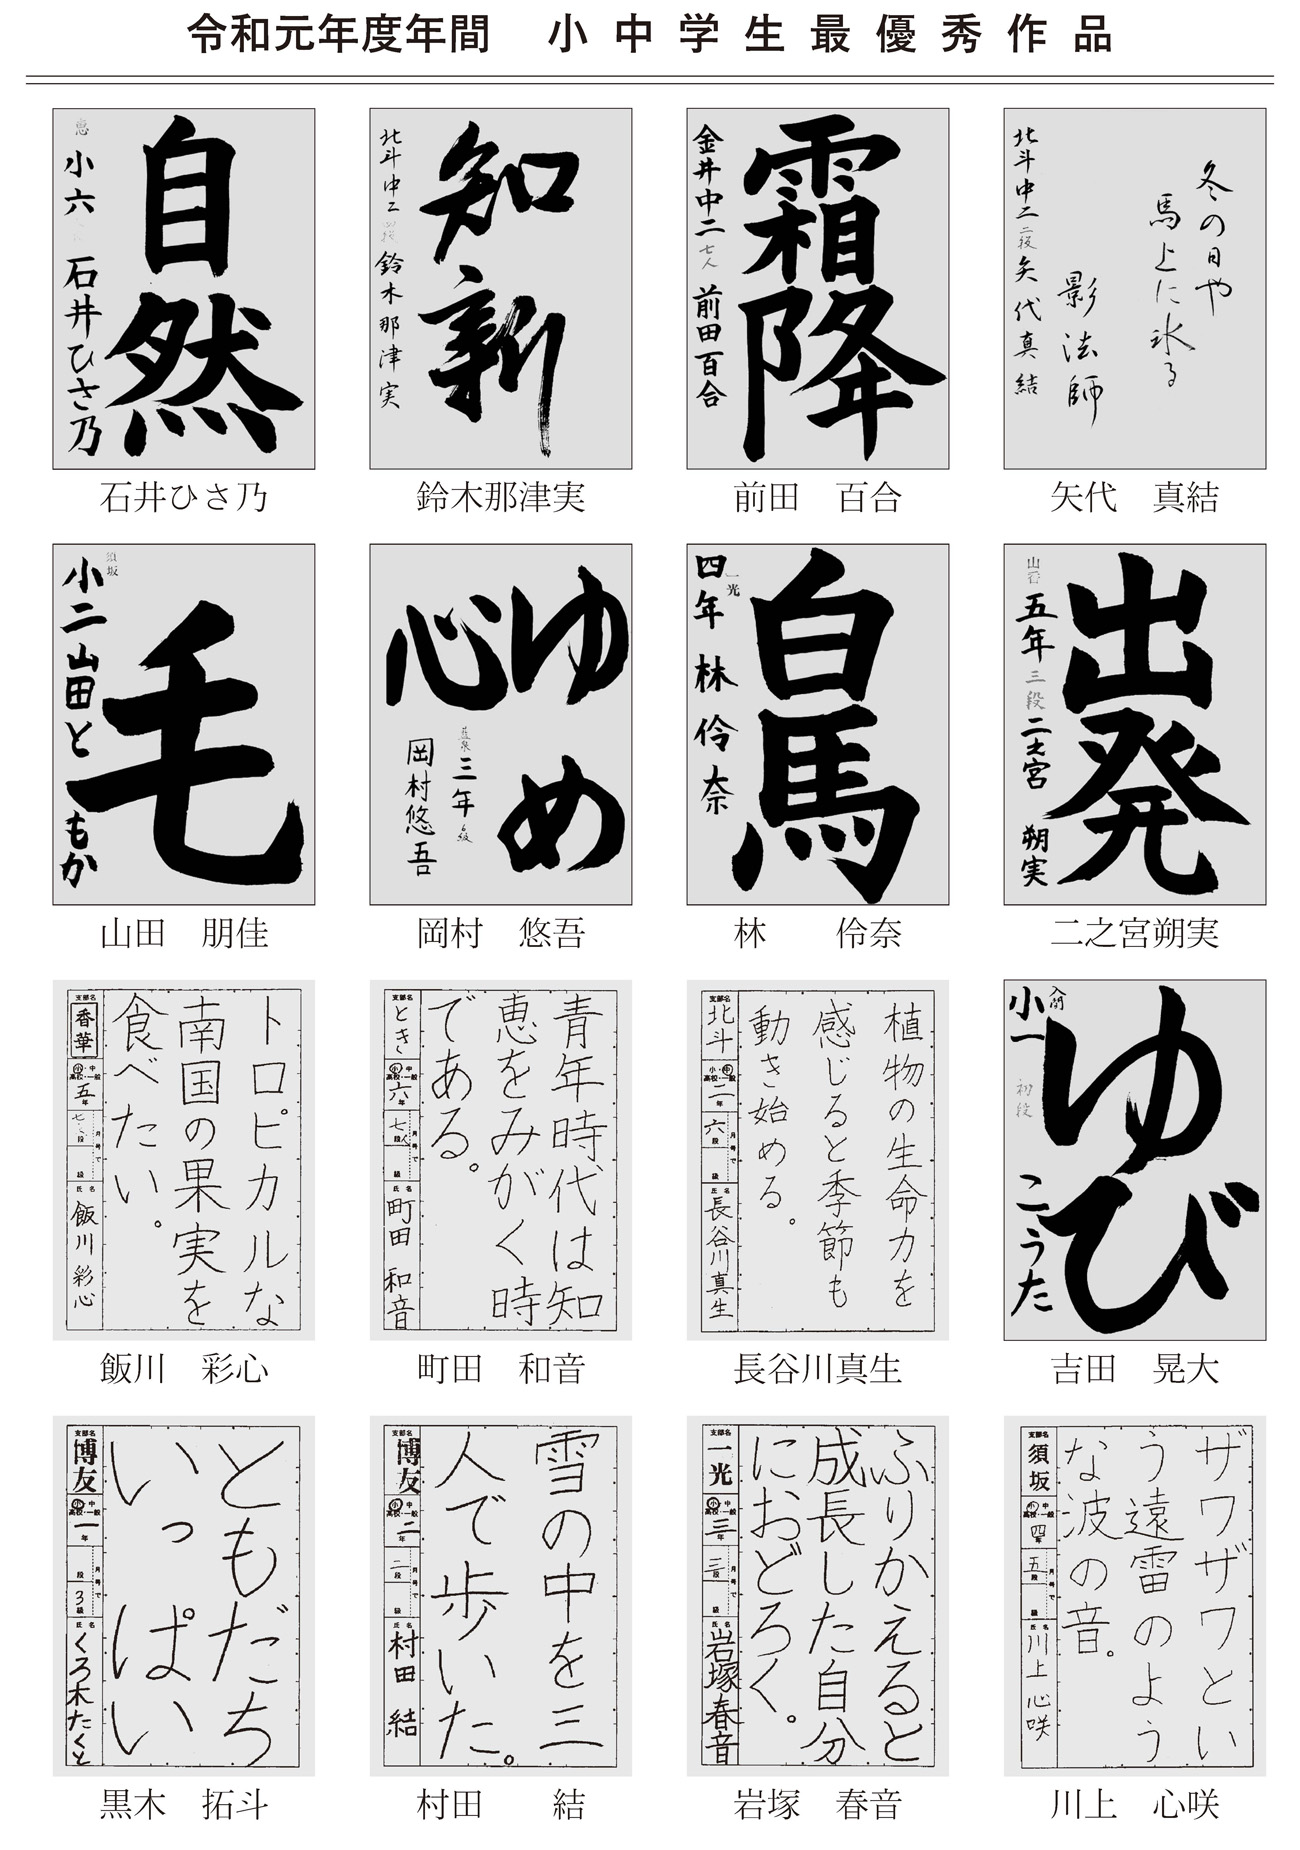 令和元年度年間　小中学生最優秀作品
自然
小六
石井ひさ乃
石井ひさ乃
知新
北斗中二
鈴木那津実
鈴木那津実
霜降
金井中二
前田百合
前田　百合
冬の日や
馬上に氷る
影法師
北斗中二 二段 矢代真結
矢代　真結
毛
須坂
小二 山田ともか
山田　朋佳
ゆめ
心
三年
岡村悠吾
岡村　悠吾
白馬
一光
四年 林伶奈
林　伶奈
出発
五年 三段 二之宮 朔実
二之宮朔実
トロピカルな
南国の果実を
食べたい。
支部名 香華
小・中
高校・一般
五年
段
月号で
級
氏名 飯川彩心
飯川　彩心
青年時代は知
恵をみがく時
である。
支部名 とき
小・中
高校・一般
六年
段
月号で
級
氏名 町田和音
町田　和音
植物の生命力を
感じると季節も
動き始める。
支部名 北斗
小・中
高校・一般
二年
六段
月号で
級
氏名 長谷川真生
長谷川真生
ゆび
入間
小一 初段 こうた
吉田　晃大
ともだち
いっぱい
支部名 博友
小・中
高校・一般
一年
段
月号で
3級
氏名 くろ木たくと
黒木　拓斗
雪の中を三
人で歩いた。
支部名 博友
小・中
高校・一般
二年
二段
月号で
級
氏名 村田結
村田　結
ふりかえると
成長した自分
におどろく。
支部名 一光
小・中
高校・一般
三年
三段
月号で
級
氏名 岩塚春音
岩塚　春音
ザワザワとい
う遠雷のよう
な波の音。
支部名 須坂
小・中
高校・一般
四年
五段
月号で
級
氏名 川上心咲
川上　心咲